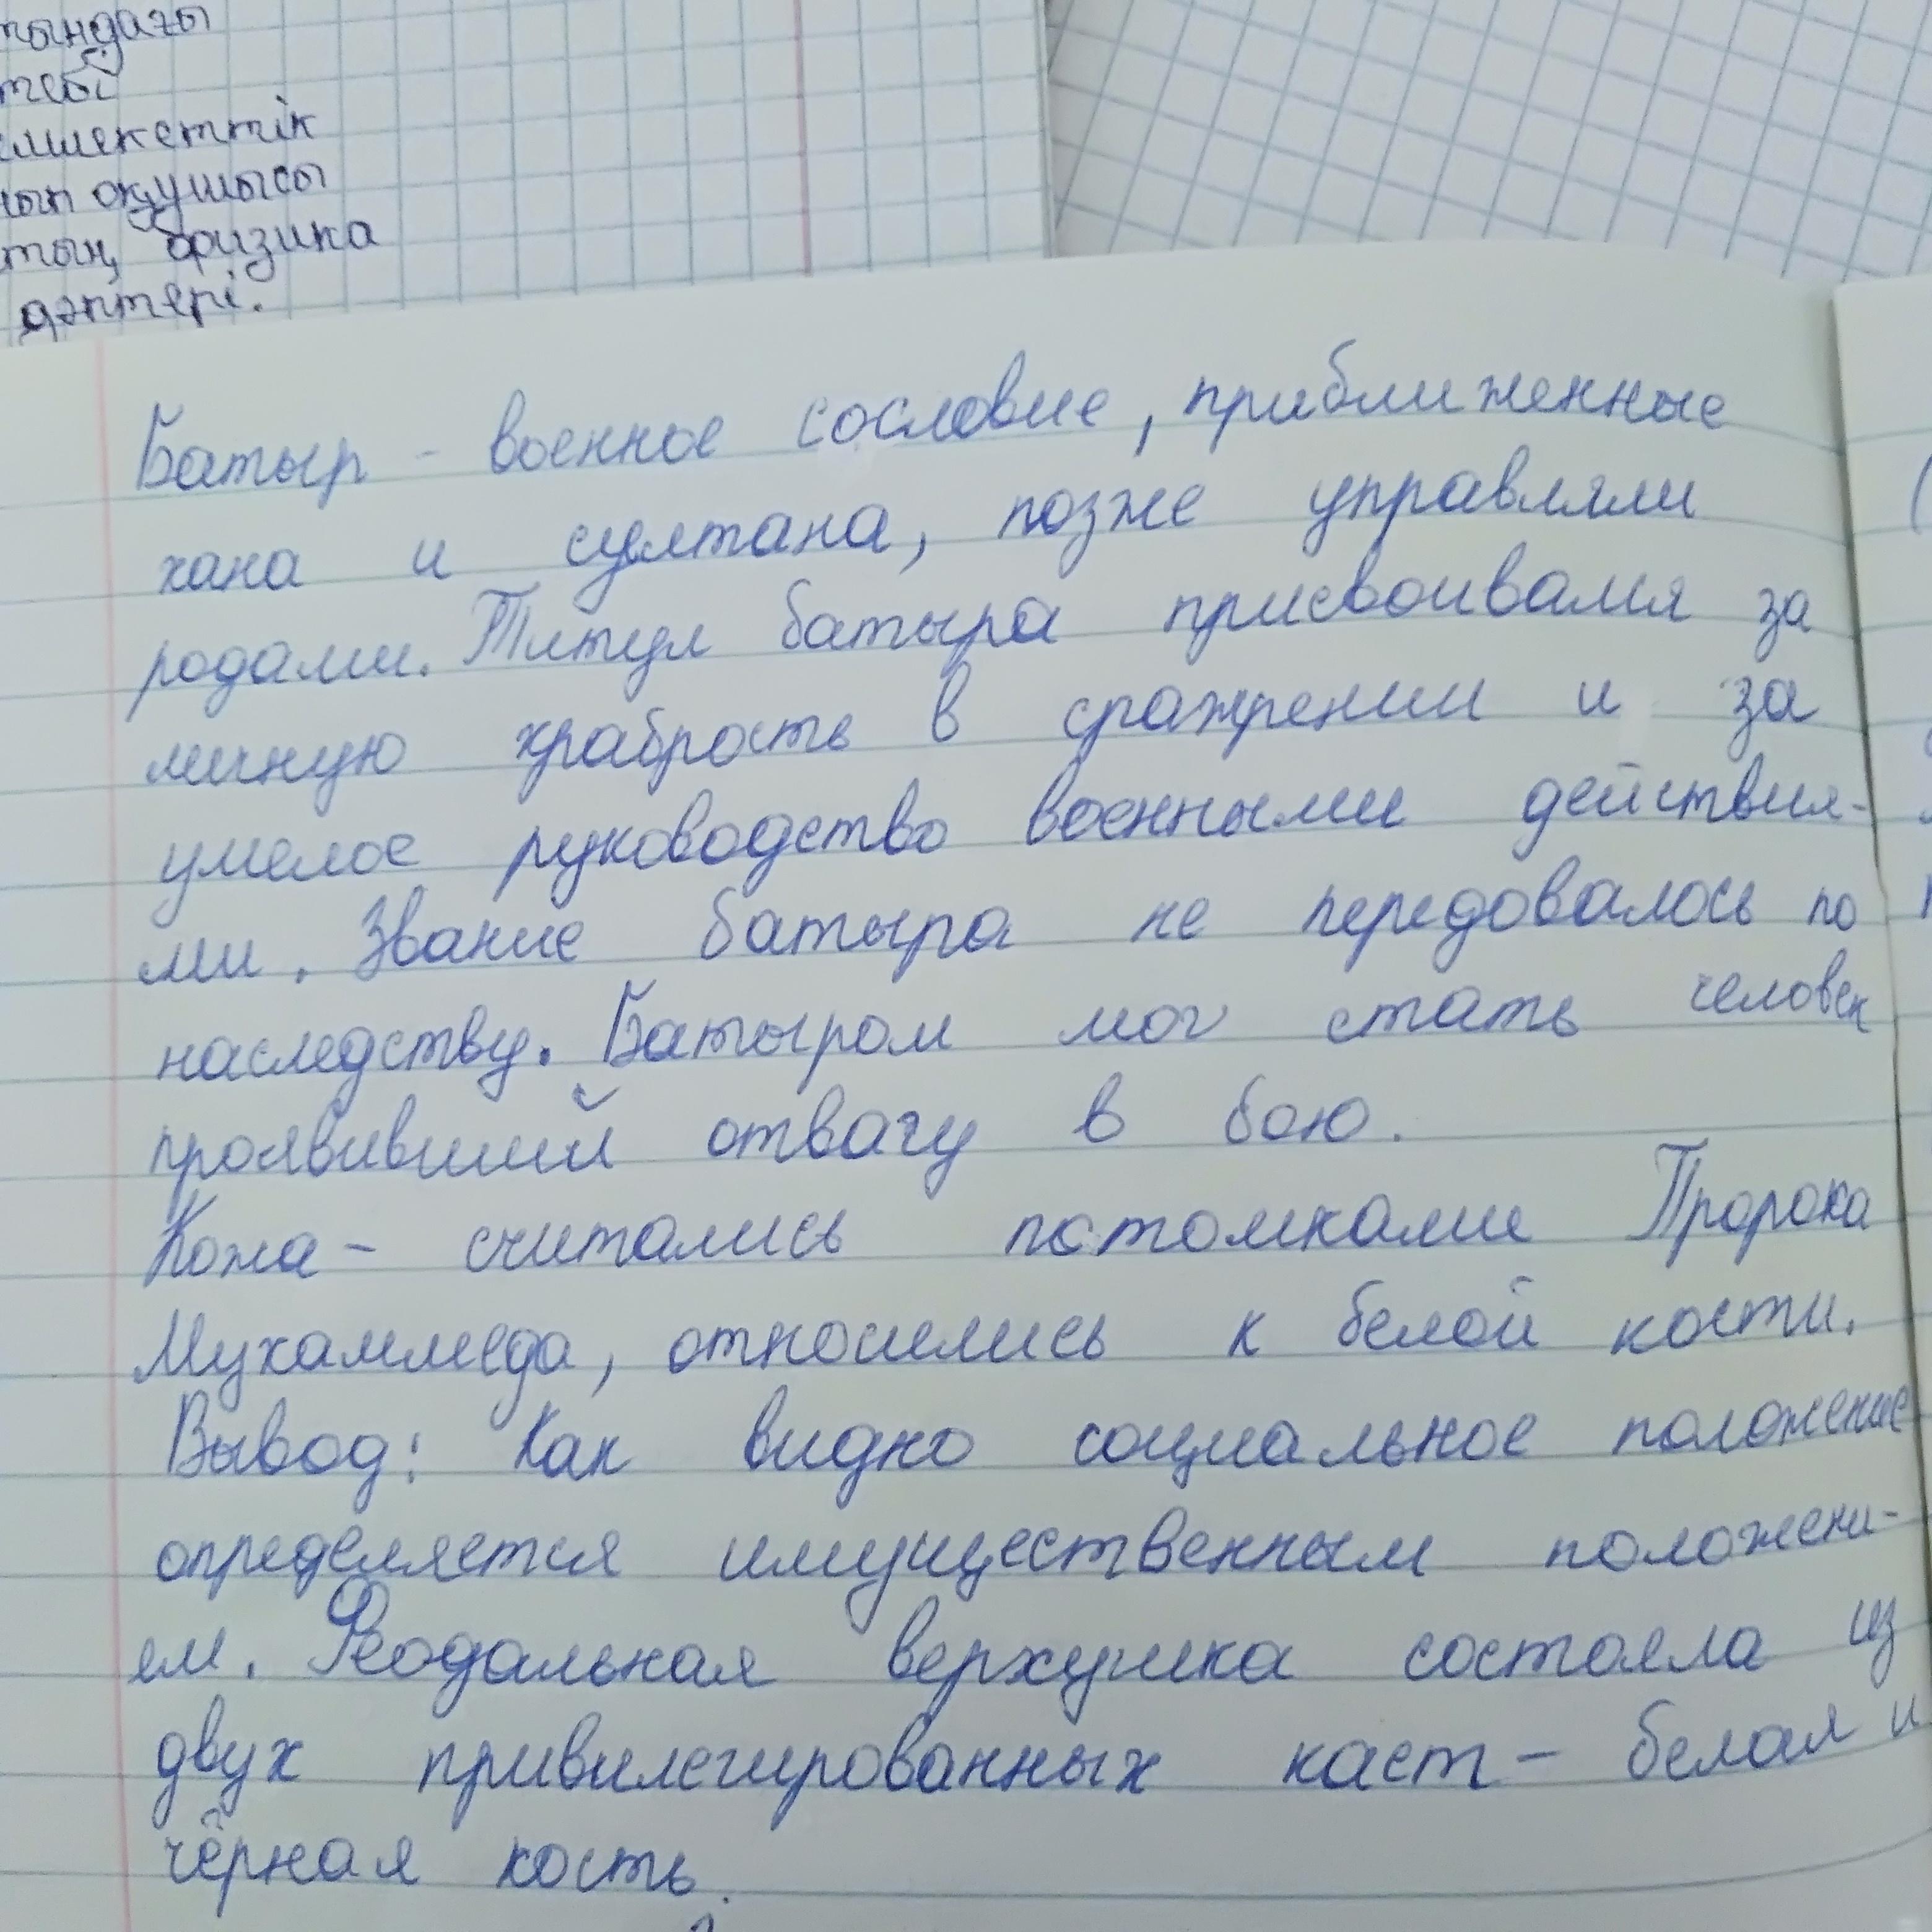 тындағы
тебі
млекеттік
ып оқушысы
тың физика
дәптері.
Батыр - военное сословие, приближенные
хана и султана, позже управляли
родами. Титул батыра присвоивался за
личную храбрость в сражении и за
умелое руководство военными действия-
ми. Звание батыра не передовалось по
наследству. Батыром мог стать человек
проявивший отвагу в бою.
Кожа - считались потомками Пророка
Мухаммеда, относились к белой кости.
Вывод: Как видно социальное положение
определяется имущественным положени-
ем. Феодальная верхушка состояла из
двух привилегированных каст - белая и
чёрная кость.